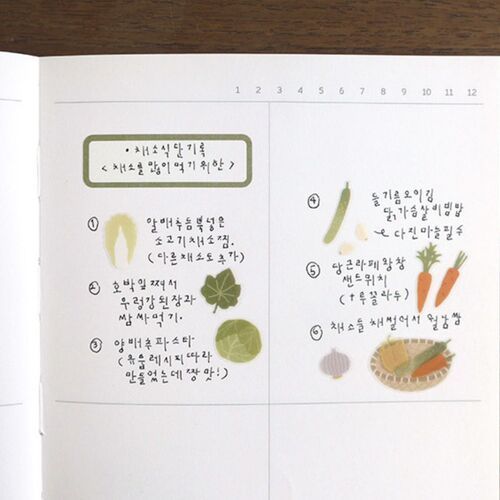 1 2 3 4 5 6 7 8 9 10 11 12
• 채소식단기록
< 채소를 많이 먹기 위한 >
① 알배추듬뿍넣은
소고기채소찜.
(다른채소도추가)
② 호박잎 쪄서
우렁강된장과
쌈싸먹기.
③ 양배추파스타
(유튭레시피따라
만들었는데 짱맛!)
④ 들기름오이김
닭가슴살비빔밥
다진마늘필수
⑤ 당근라페왕창
샌드위치
(+루꼴라두)
⑥ 채소들 채썰어서 월남쌈